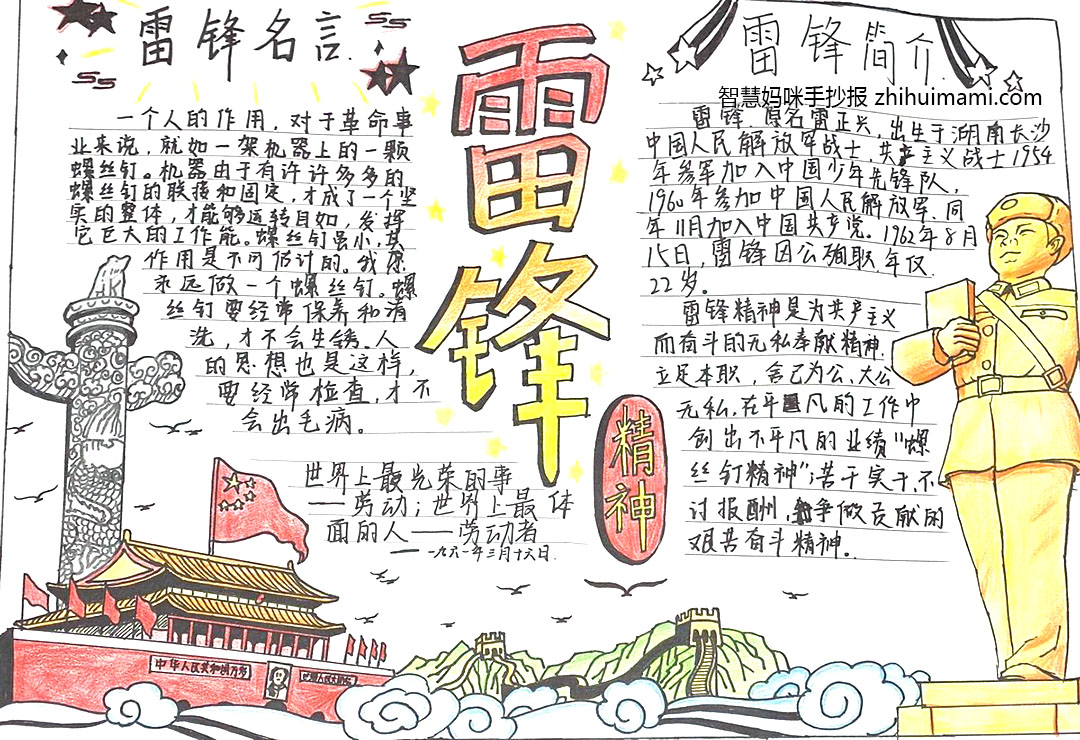 雷锋名言.
一个人的作用，对于革命事
业来说，就如一架机器上的一颗
螺丝钉。机器由于有许许多多的
螺丝钉的联接和固定，才成了一个坚
实的整体，才能够运转自如，发挥
它巨大的工作能。螺丝钉虽小，其
作用是不可估计的。我愿
永远做一个螺丝钉。螺
丝钉要经常保养和清
洗，才不会生锈。人
的思想也是这样，
要经常检查，才不
会出毛病。
世界上最光荣的事
——劳动；世界上最体
面的人——劳动者
——一九六一年三月十六日.
雷锋
精神
雷锋简介.
智慧妈咪手抄报 zhihuimami.com
雷锋，原名雷正兴，出生于湖南长沙
中国人民解放军战士，共产主义战士1954
年参军加入中国少年先锋队，
1960年参加中国人民解放军.同
年11月加入中国共产党。1962年8月
15日，雷锋因公殉职，年仅
22岁。
雷锋精神是为共产主义
而奋斗的无私奉献精神.
立足本职，舍己为公、大公
无私，在平凡的工作中
创出不平凡的业绩"螺
丝钉精神"；苦干实干，不
讨报酬，争做贡献的
艰苦奋斗精神。
中华人民共和国万岁